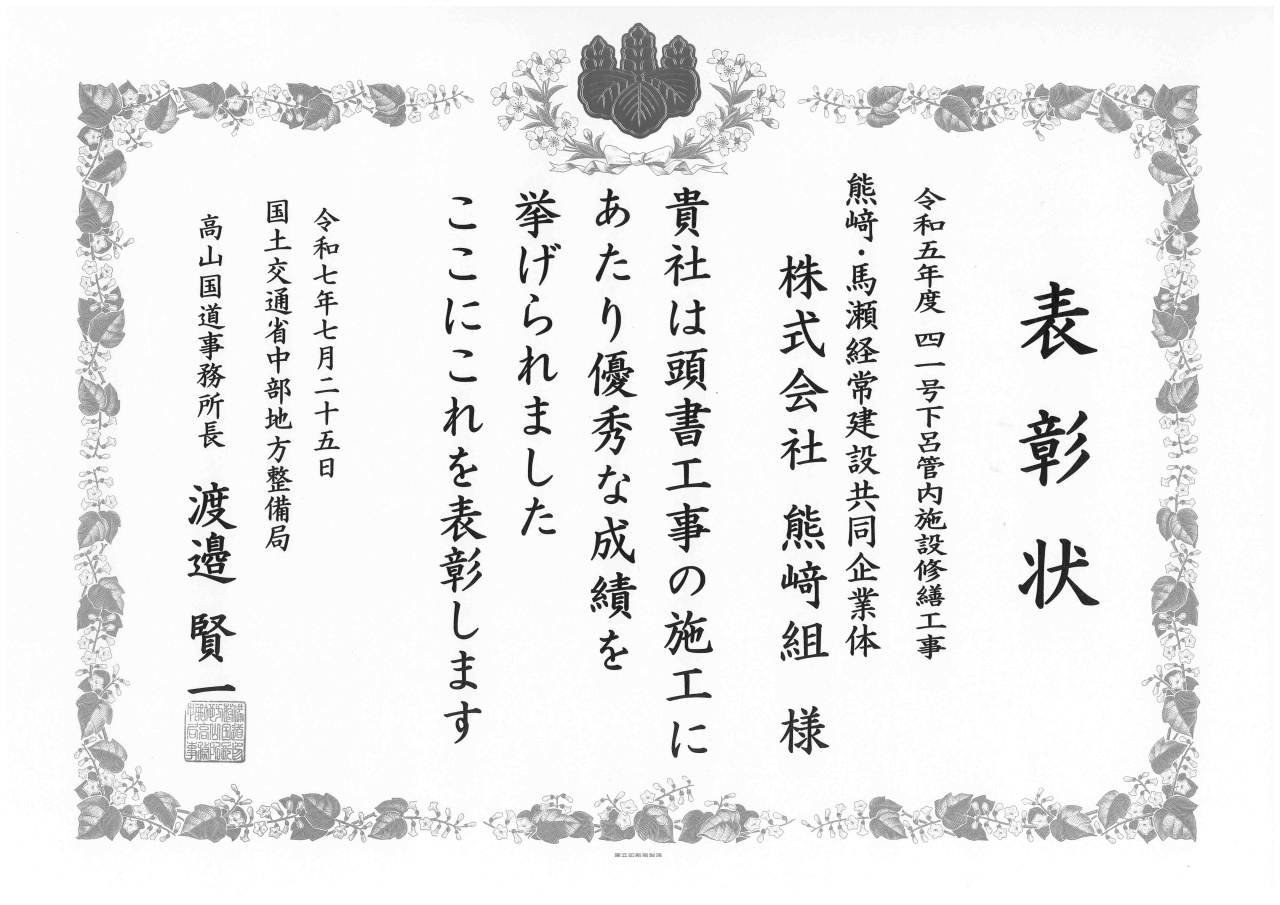 表彰状
令和五年度 四一号下呂管内施設修繕工事
熊﨑・馬瀬経常建設共同企業体
株式会社 熊﨑組 様
貴社は頭書工事の施工に
あたり優秀な成績を
挙げられました
ここにこれを表彰します
令和七年七月二十五日
国土交通省中部地方整備局
高山国道事務所長 渡邉 賢一
国立印刷局製造